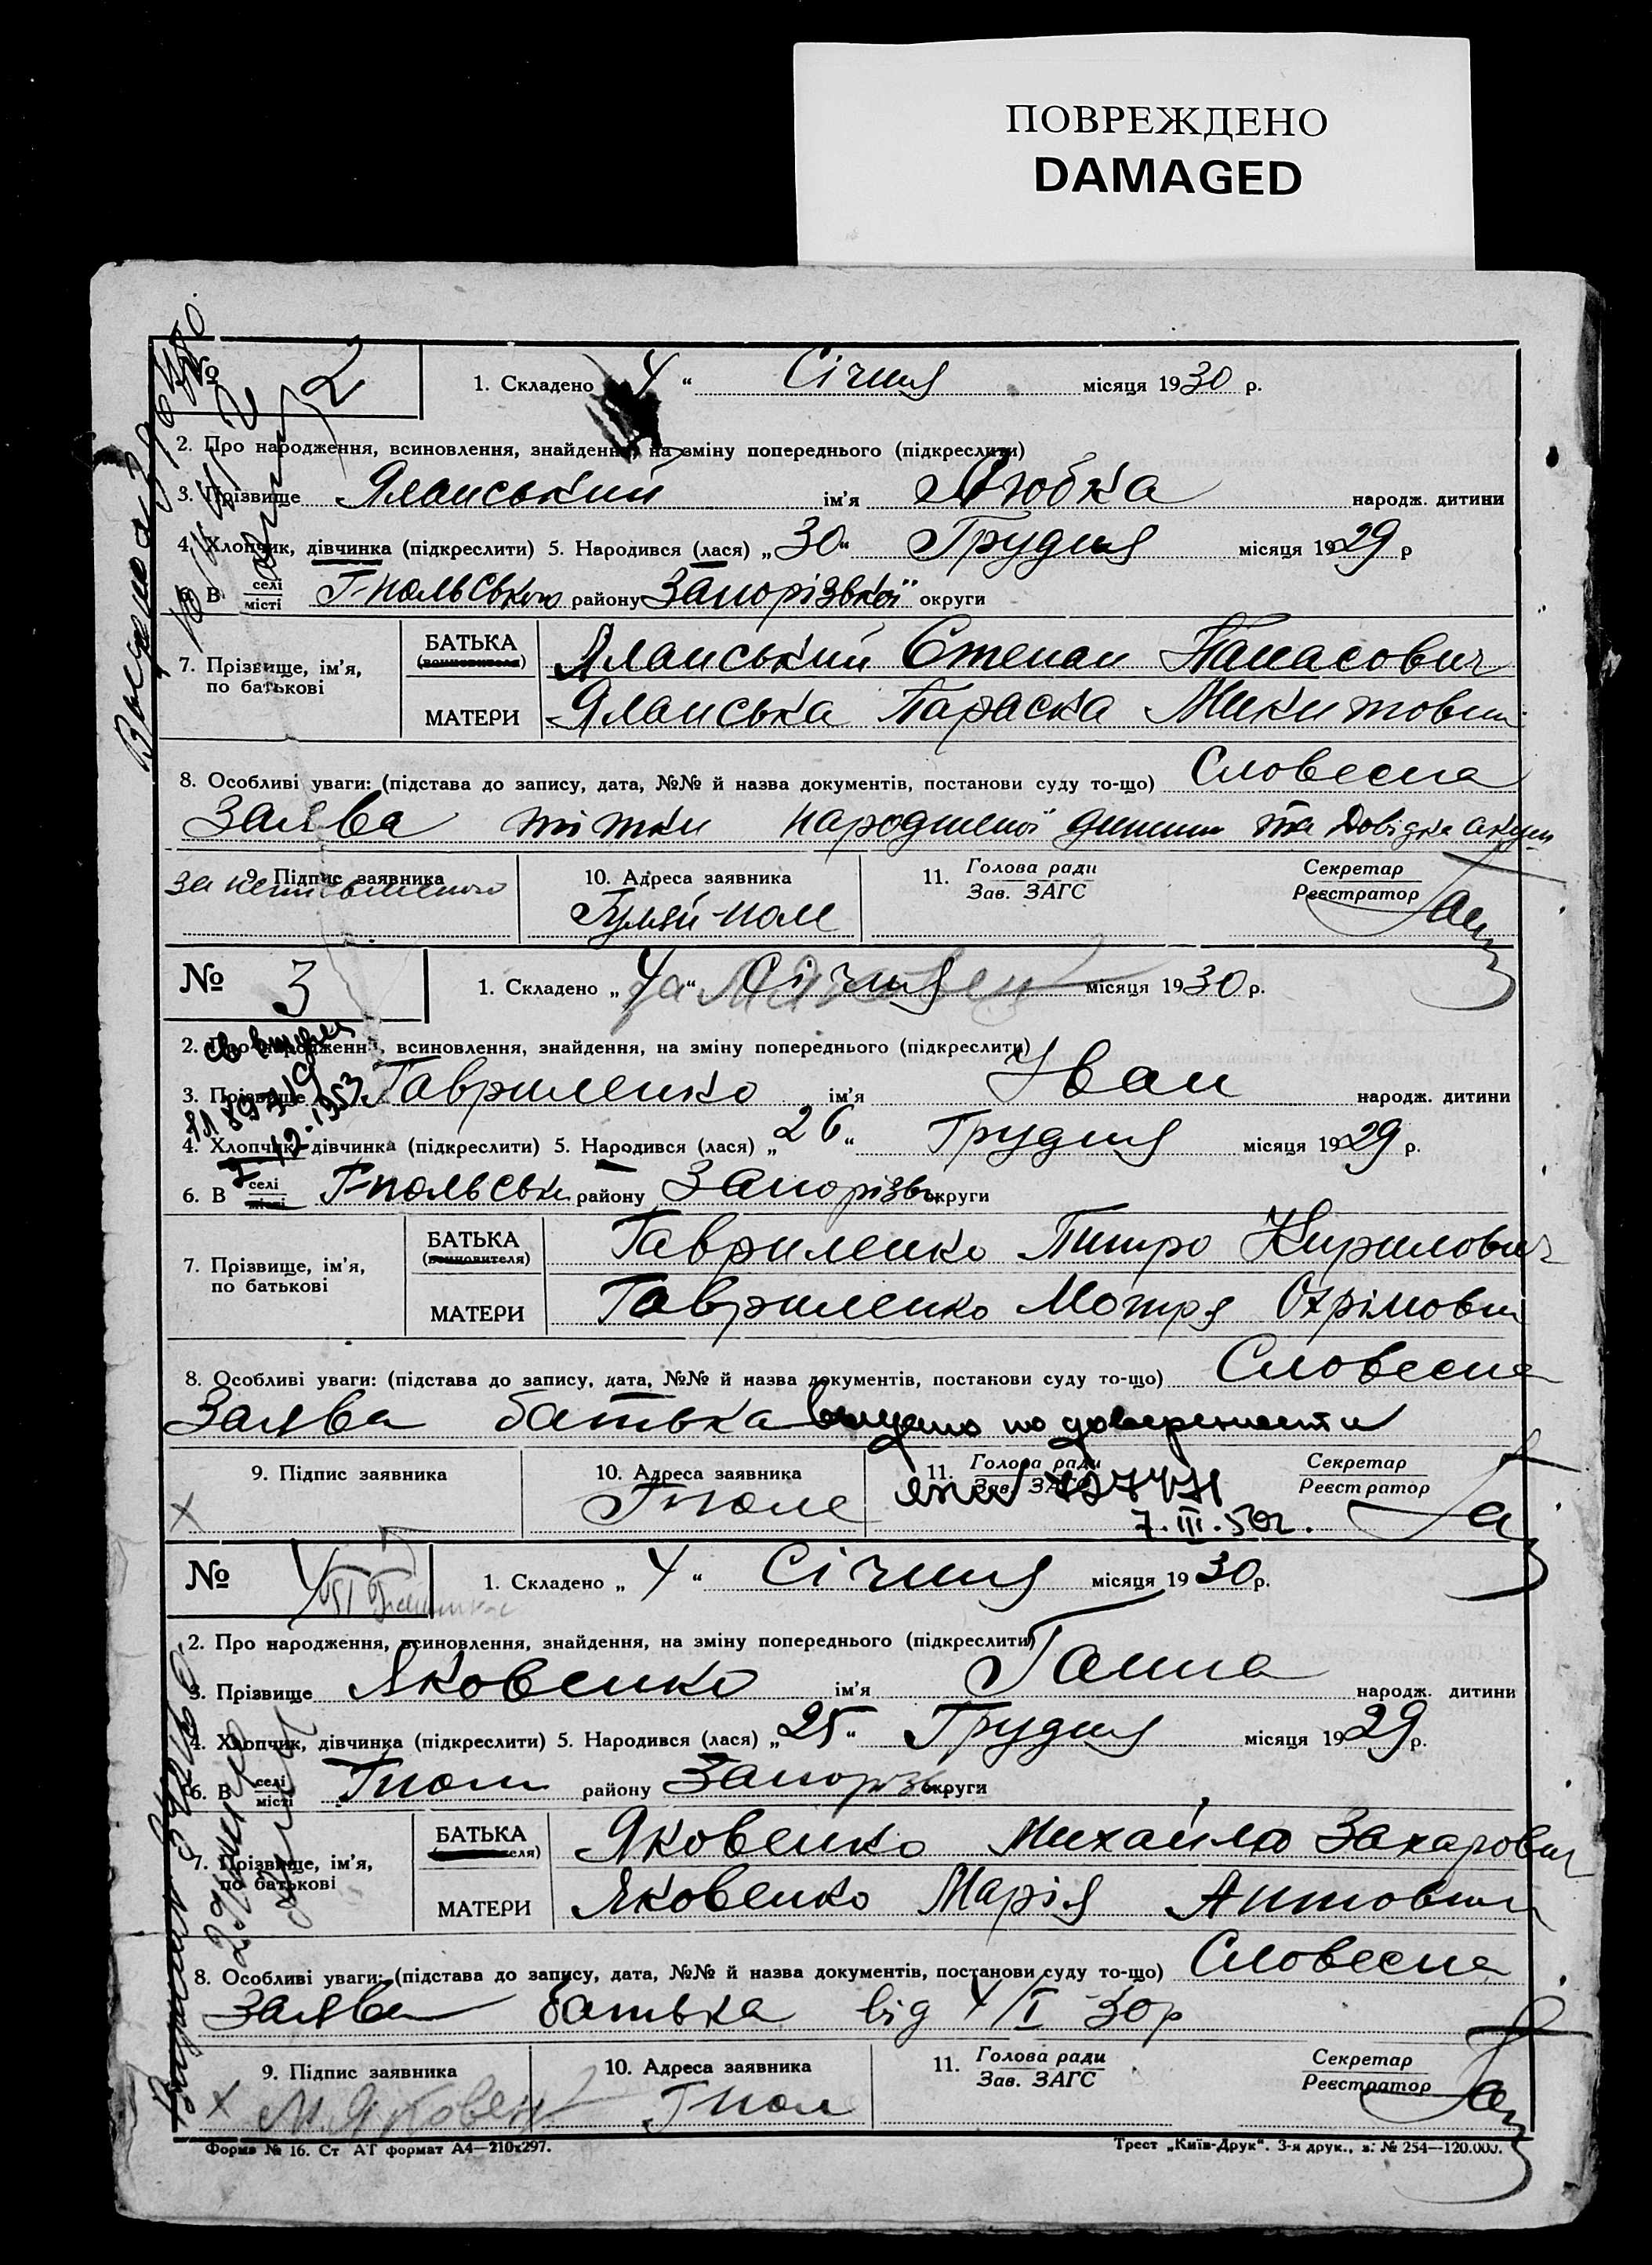 ПОВРЕЖДЕНО
DAMAGED
№ 2
1. Складено „ 4 “ Січня місяця 1930 р.
2. Про народження, всиновлення, знайдення, на зміну попереднього (підкреслити)
3. Прізвище Яланський ім'я Любка народж. дитини
4. Хлопчик, дівчинка (підкреслити) 5. Народився (лася) „ 30 “ Грудня місяця 1929 р
6. В селі місті Г-польського району Запорізької округи
7. Прізвище, ім'я, по батькові
БАТЬКА (всиновителя) Яланський Степан Панасович
МАТЕРИ Яланська Параска Микитовн
8. Особливі уваги: (підстава до запису, дата, №№ й назва документів, постанови суду то-що) Словесна
Заява тітки народженої дитини та Довідка акуш
9. Підпис заявника 10. Адреса заявника 11. Голова ради Зав. ЗАГС Секретар Реєстратор
Гуляй-поле
№ 3
1. Складено „ 4 “ Січня місяця 1930 р.
2. Про народження, всиновлення, знайдення, на зміну попереднього (підкреслити)
3. Прізвище Гавриленко ім'я Иван народж. дитини
4. Хлопчик, дівчинка (підкреслити) 5. Народився (лася) „ 26 “ Грудня місяця 1929 р.
6. В селі місті Г-польськ району Запорізьк округи
7. Прізвище, ім'я, по батькові
БАТЬКА (всиновителя) Гавриленко Питро Кирилович
МАТЕРИ Гавриленко Мотря Охрімовн
8. Особливі уваги: (підстава до запису, дата, №№ й назва документів, постанови суду то-що) Словесна
Заява батька выдано по доверенности
9. Підпис заявника 10. Адреса заявника 11. Голова ради Зав. ЗАГС Секретар Реєстратор
Х Гполе
7. III. 50г.
№ 4
1. Складено „ 4 “ Січня місяця 1930 р.
2. Про народження, всиновлення, знайдення, на зміну попереднього (підкреслити)
3. Прізвище Яковенко ім'я Ганна народж. дитини
4. Хлопчик, дівчинка (підкреслити) 5. Народився (лася) „ 25 “ Грудня місяця 1929 р.
6. В селі місті Гполь району Запорізь округи
7. Прізвище, ім'я, по батькові
БАТЬКА Яковенко Михайло Захарович
МАТЕРИ Яковенко Марія Антовни
8. Особливі уваги: (підстава до запису, дата, №№ й назва документів, постанови суду то-що) Словесна
Заява батька від 4/I 30р
9. Підпис заявника 10. Адреса заявника 11. Голова ради Зав. ЗАГС Секретар Реєстратор
Х М Яковен Гпол
Форма № 16. Ст АТ формат А4—210х297.
Трест „Київ-Друк“. 3-я друк., з. № 254—120.000.